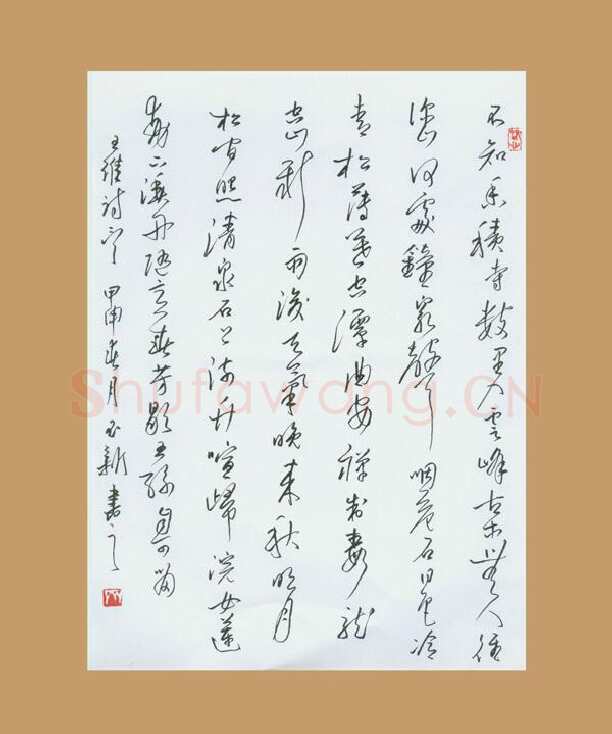 不知香積寺數里入雲峰古木無人徑
深山何處鐘泉聲咽危石日色冷
青松薄暮空潭曲安禪制毒龍
空山新雨後天氣晚來秋明月
松間照清泉石上流竹喧歸浣女蓮
動下漁舟隨意春芳歇王孫自可留
王維詩 甲申春月 新書之
Shufawang.CN